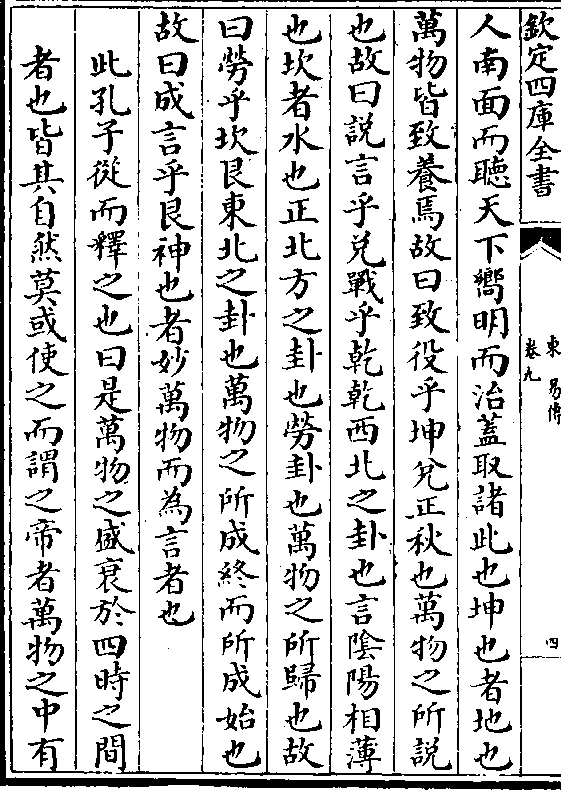 欽定四庫全書
東易傳
卷九
四
人南面而聽天下嚮明而治蓋取諸此也坤也者地也
萬物皆致養焉故曰致役乎坤兊正秋也萬物之所説
也故曰説言乎兊戰乎乾乾西北之卦也言陰陽相薄
也坎者水也正北方之卦也勞卦也萬物之所歸也故
曰勞乎坎艮東北之卦也萬物之所成終而所成始也
故曰成言乎艮神也者妙萬物而為言者也
此孔子從而釋之也曰是萬物之盛衰於四時之間
者也皆其自然莫或使之而謂之帝者萬物之中有